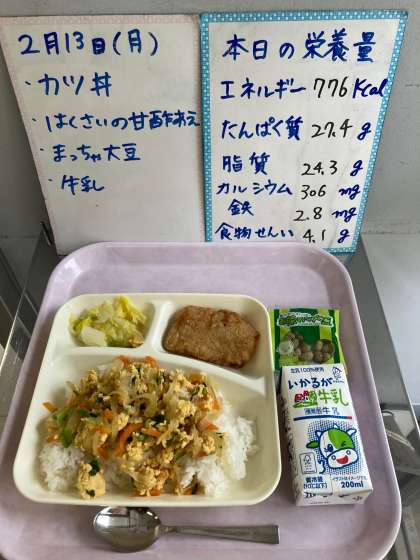 2月13日(月)
・カツ丼
・はくさいの甘酢あえ
・まっちゃ大豆
・牛乳
本日の栄養量
エネルギー 776 Kcal
たんぱく質 27.4 g
脂質 24.3 g
カルシウム 306 mg
鉄 2.8 mg
食物せんい 4.1 g
生乳100%使用
いかるが
牛乳
200ml